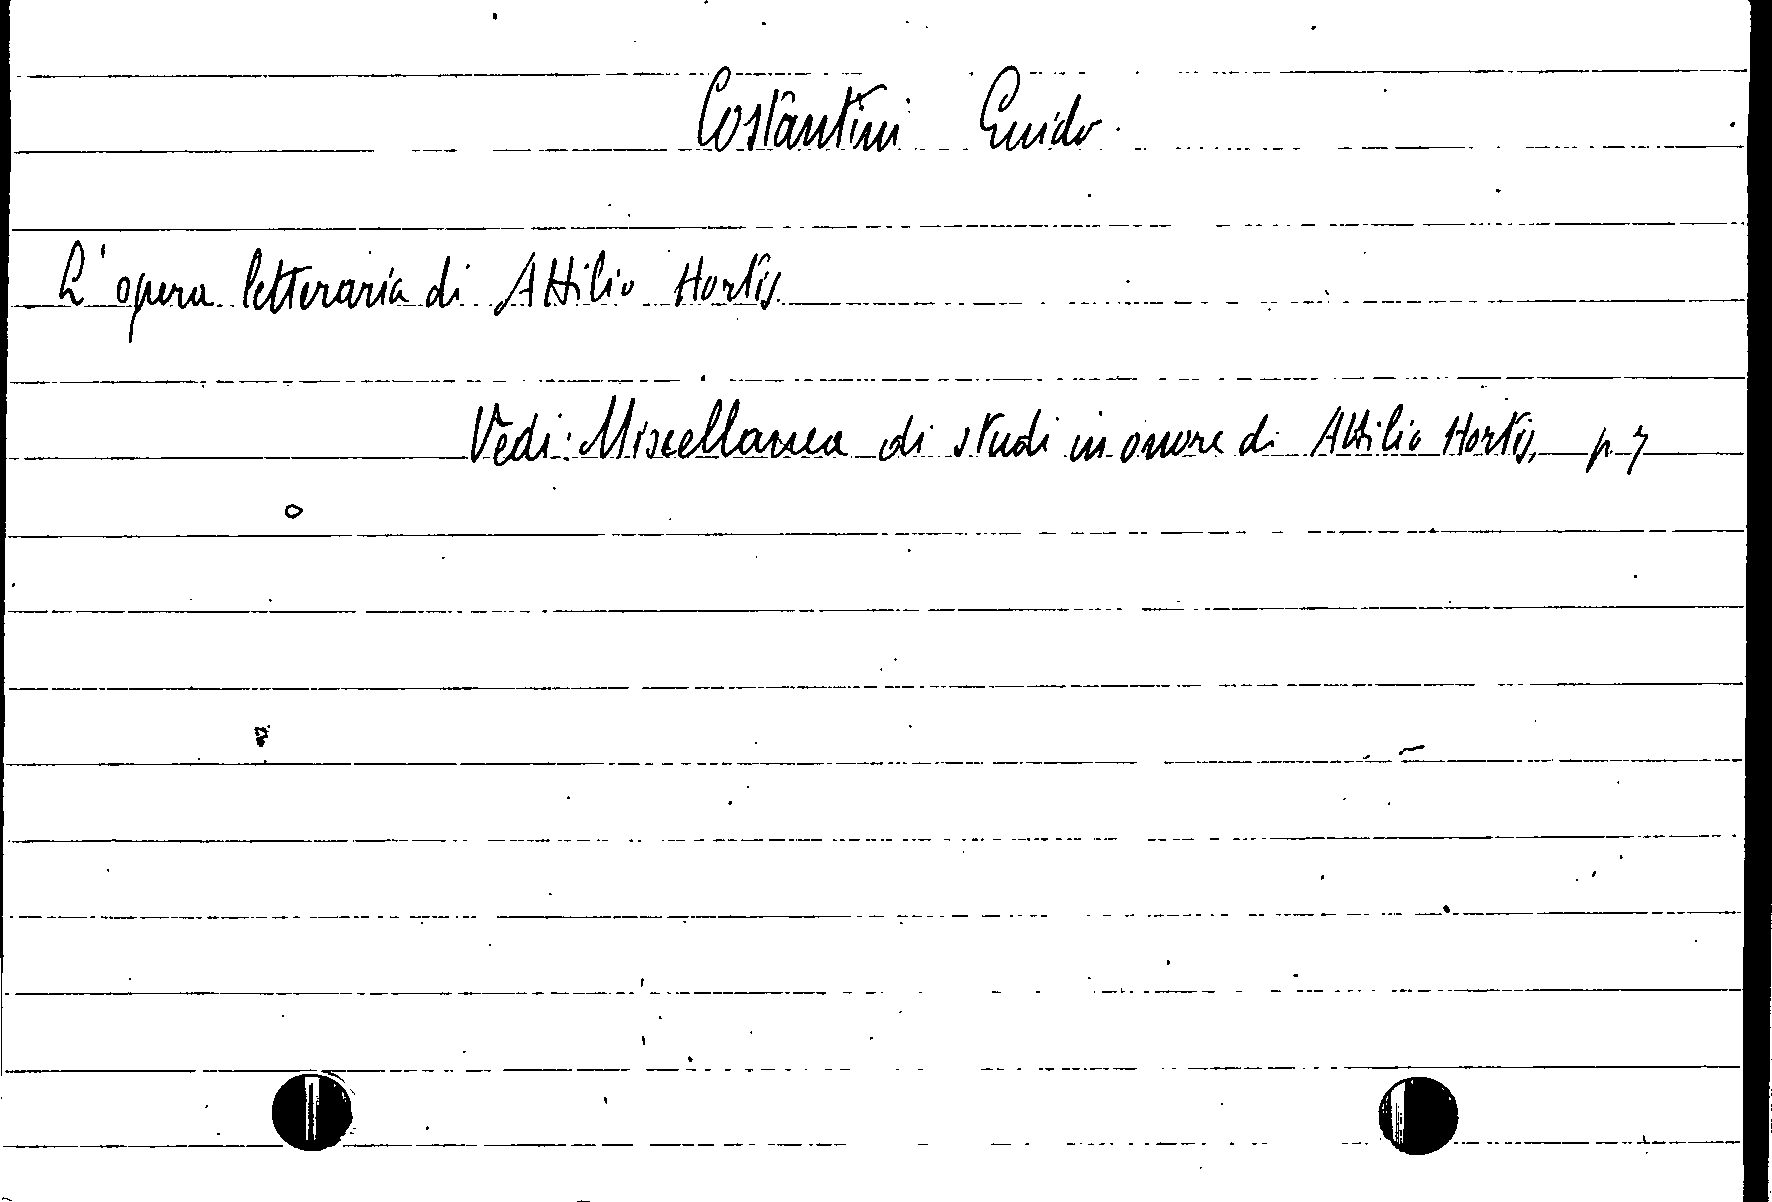 Costantini Guido.
L'opera letteraria di Attilio Hortis.
Vedi: Miscellanea di studi in onore di Attilio Hortis, p. 7